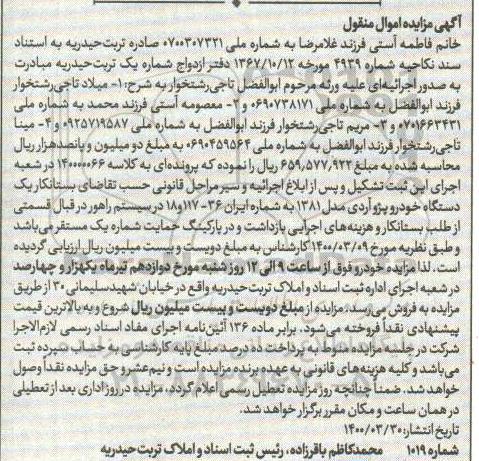 آگهی مزایده اموال منقول
خانم فاطمه آستی فرزند غلامرضا به شماره ملی ۰۷۰۰۳۰۷۳۲۱ صادره تربت‌حیدریه به استناد
سند نکاحیه شماره ۴۹۳۹ مورخه ۱۳۶۷/۱۰/۱۲ دفتر ازدواج شماره یک تربت‌حیدریه مبادرت
به صدور اجرائیه‌ای علیه ورثه مرحوم ابوالفضل تاجی‌رشتخوار به شرح: ۱- میلاد تاجی‌رشتخوار
فرزند ابوالفضل به شماره ملی ۰۶۹۰۷۳۸۱۷۱ و ۲- معصومه آستی فرزند محمد به شماره ملی
۰۷۰۱۶۶۳۴۳۱ و ۳- مریم تاجی‌رشتخوار فرزند ابوالفضل به شماره ملی ۰۹۲۵۷۱۹۵۸۷ و ۴- مینا
تاجی‌رشتخوار فرزند ابوالفضل به شماره ملی ۰۶۹۰۴۵۹۵۶۴ به مبلغ دو میلیون و پانصدهزار ریال
محاسبه شده به مبلغ ۶۵۹,۵۷۷,۹۲۲ ریال را نموده که پرونده‌ای به کلاسه ۱۴۰۰۰۰۰۶۶ در شعبه
اجرای این ثبت تشکیل و پس از ابلاغ اجرائیه و سیر مراحل قانونی حسب تقاضای بستانکار یک
دستگاه خودرو پژو آردی مدل ۱۳۸۱ به شماره ایران ۳۶- ۱۸۰۱۱۷ در سیستم راهور در قبال قسمتی
از طلب بستانکار و هزینه‌های اجرایی بازداشت و در پارکینگ حمایت شماره یک مستقر می‌باشد
و طبق نظریه مورخ ۱۴۰۰/۰۳/۰۹ کارشناس به مبلغ دویست و بیست میلیون ریال ارزیابی گردیده
است. لذا مزایده خودرو فوق از ساعت ۹ الی ۱۲ روز شنبه مورخ دوازدهم تیرماه یکهزار و چهارصد
در شعبه اجرای اداره ثبت اسناد و املاک تربت‌حیدریه واقع در خیابان شهید سلیمانی ۳۰ از طریق
مزایده به فروش می‌رسد. مزایده از مبلغ دویست و بیست میلیون ریال شروع و به بالاترین قیمت
پیشنهادی نقداً فروخته می‌شود. برابر ماده ۱۳۶ آئین‌نامه اجرای مفاد اسناد رسمی لازم‌الاجرا
شرکت در جلسه مزایده منوط به پرداخت ده درصد مبلغ پایه کارشناسی به حساب سپرده ثبت
می‌باشد و کلیه هزینه‌های قانونی به عهده برنده مزایده است و نیم‌عشر و حق مزایده نقداً وصول
خواهد شد. ضمناً چنانچه روز مزایده تعطیل رسمی اعلام گردد، مزایده در روز اداری بعد از تعطیلی
در همان ساعت و مکان مقرر برگزار خواهد شد.
تاریخ انتشار: ۱۴۰۰/۰۳/۳۰
شماره ۱۰۱۹ محمدکاظم باقرزاده، رئیس ثبت اسناد و املاک تربت‌حیدریه